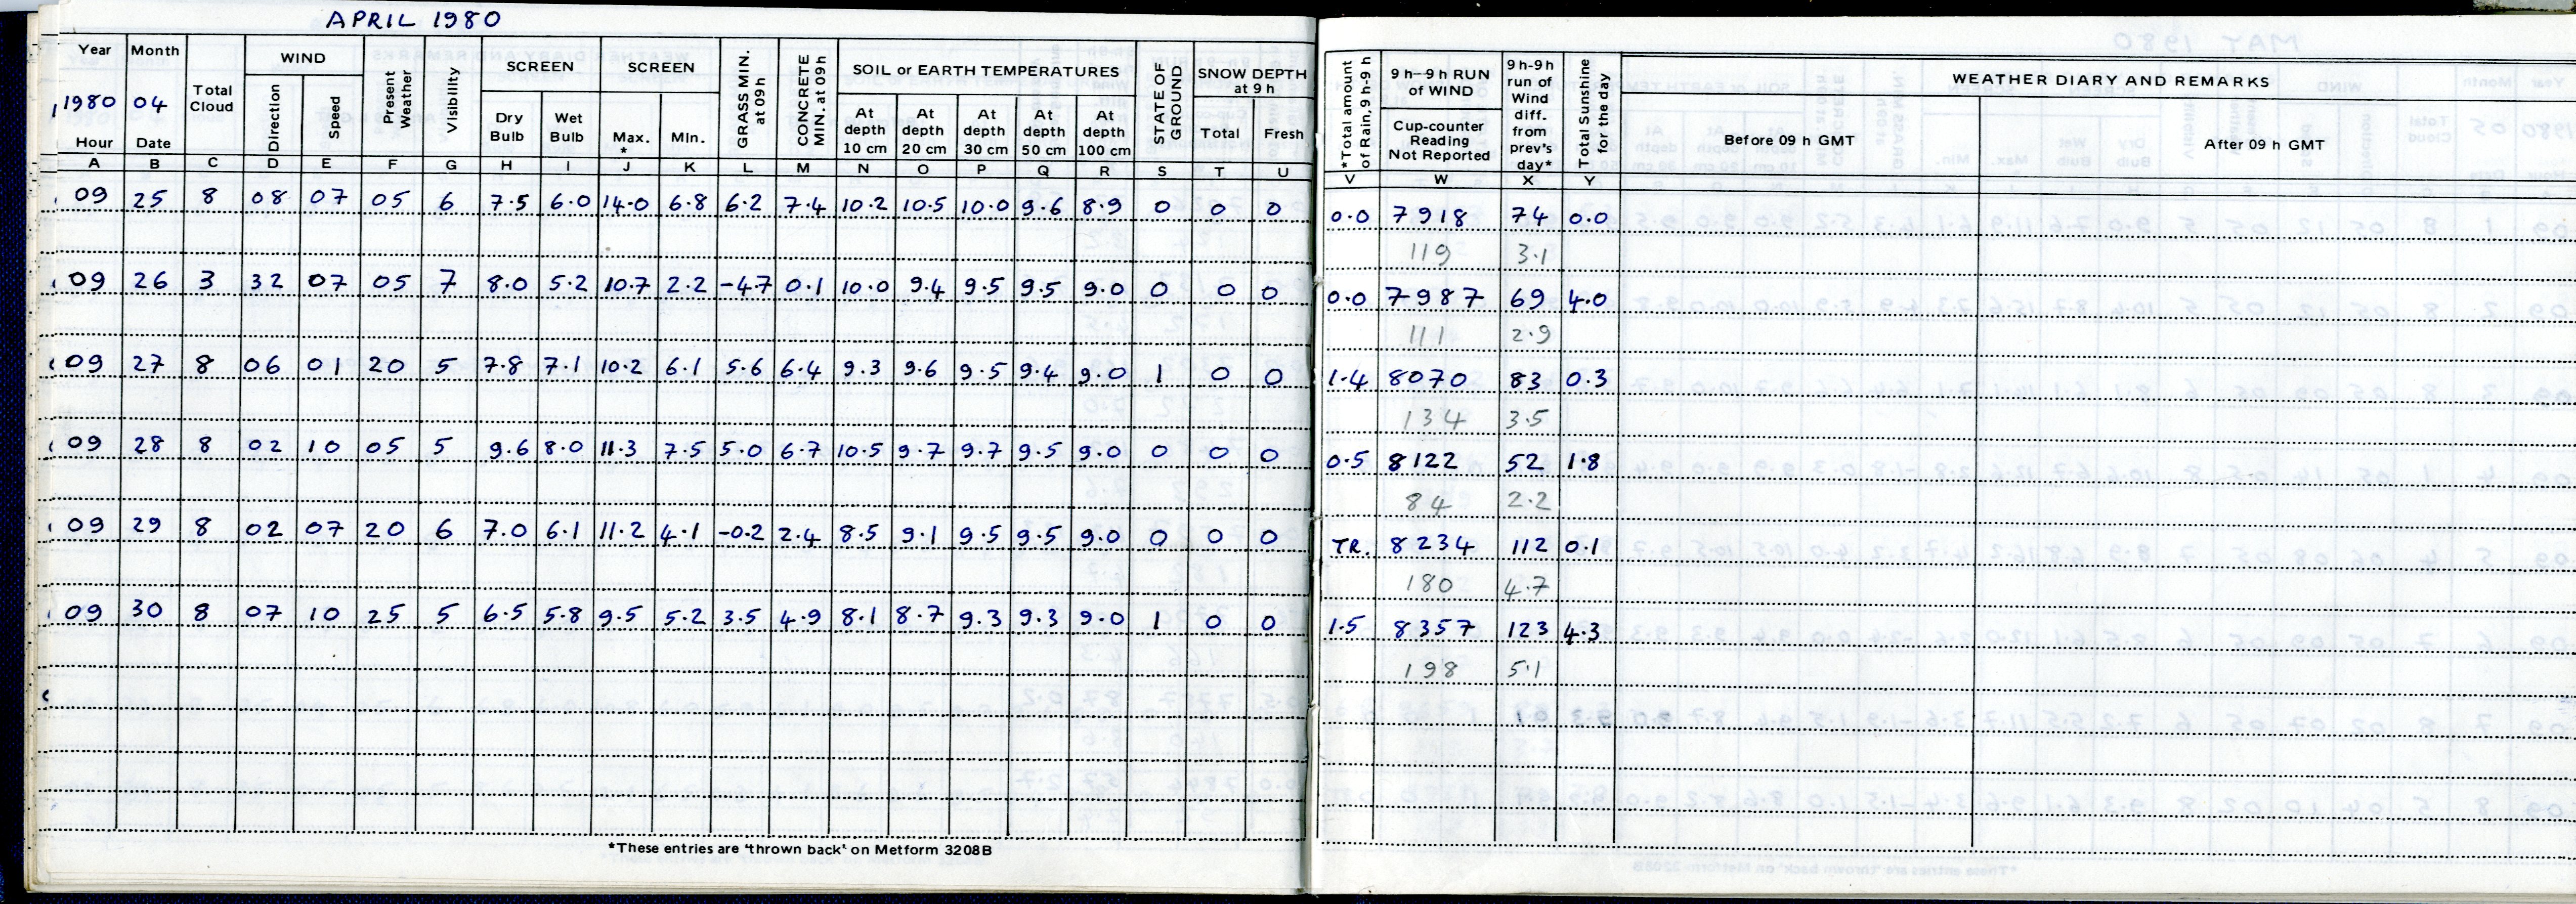 APRIL 1980
Year Month Total Cloud WIND Present Weather Visibility SCREEN SCREEN GRASS MIN. at 09h CONCRETE MIN. at 09h SOIL or EARTH TEMPERATURES STATE OF GROUND SNOW DEPTH at 9 h *Total amount of Rain, 9h-9h 9h–9h RUN of WIND 9h-9h run of Wind diff. from prev's day* Total Sunshine for the day WEATHER DIARY AND REMARKS
1980 04 Direction Speed Dry Bulb Wet Bulb Max. * Min. At depth 10 cm At depth 20 cm At depth 30 cm At depth 50 cm At depth 100 cm Total Fresh Cup-counter Reading Not Reported Before 09 h GMT After 09 h GMT
Hour Date
A B C D E F G H I J K L M N O P Q R S T U V W X Y
09 25 8 08 07 05 6 7.5 6.0 14.0 6.8 6.2 7.4 10.2 10.5 10.0 9.6 8.9 0 0 0 0.0 7918 74 0.0
119 3.1
09 26 3 32 07 05 7 8.0 5.2 10.7 2.2 -4.7 0.1 10.0 9.4 9.5 9.5 9.0 0 0 0 0.0 7987 69 4.0
111 2.9
09 27 8 06 01 20 5 7.8 7.1 10.2 6.1 5.6 6.4 9.3 9.6 9.5 9.4 9.0 1 0 0 1.4 8070 83 0.3
134 3.5
09 28 8 02 10 05 5 9.6 8.0 11.3 7.5 5.0 6.7 10.5 9.7 9.7 9.5 9.0 0 0 0 0.5 8122 52 1.8
84 2.2
09 29 8 02 07 20 6 7.0 6.1 11.2 4.1 -0.2 2.4 8.5 9.1 9.5 9.5 9.0 0 0 0 TR. 8234 112 0.1
180 4.7
09 30 8 07 10 25 5 6.5 5.8 9.5 5.2 3.5 4.9 8.1 8.7 9.3 9.3 9.0 1 0 0 1.5 8357 123 4.3
198 5.1
*These entries are 'thrown back' on Metform 3208B